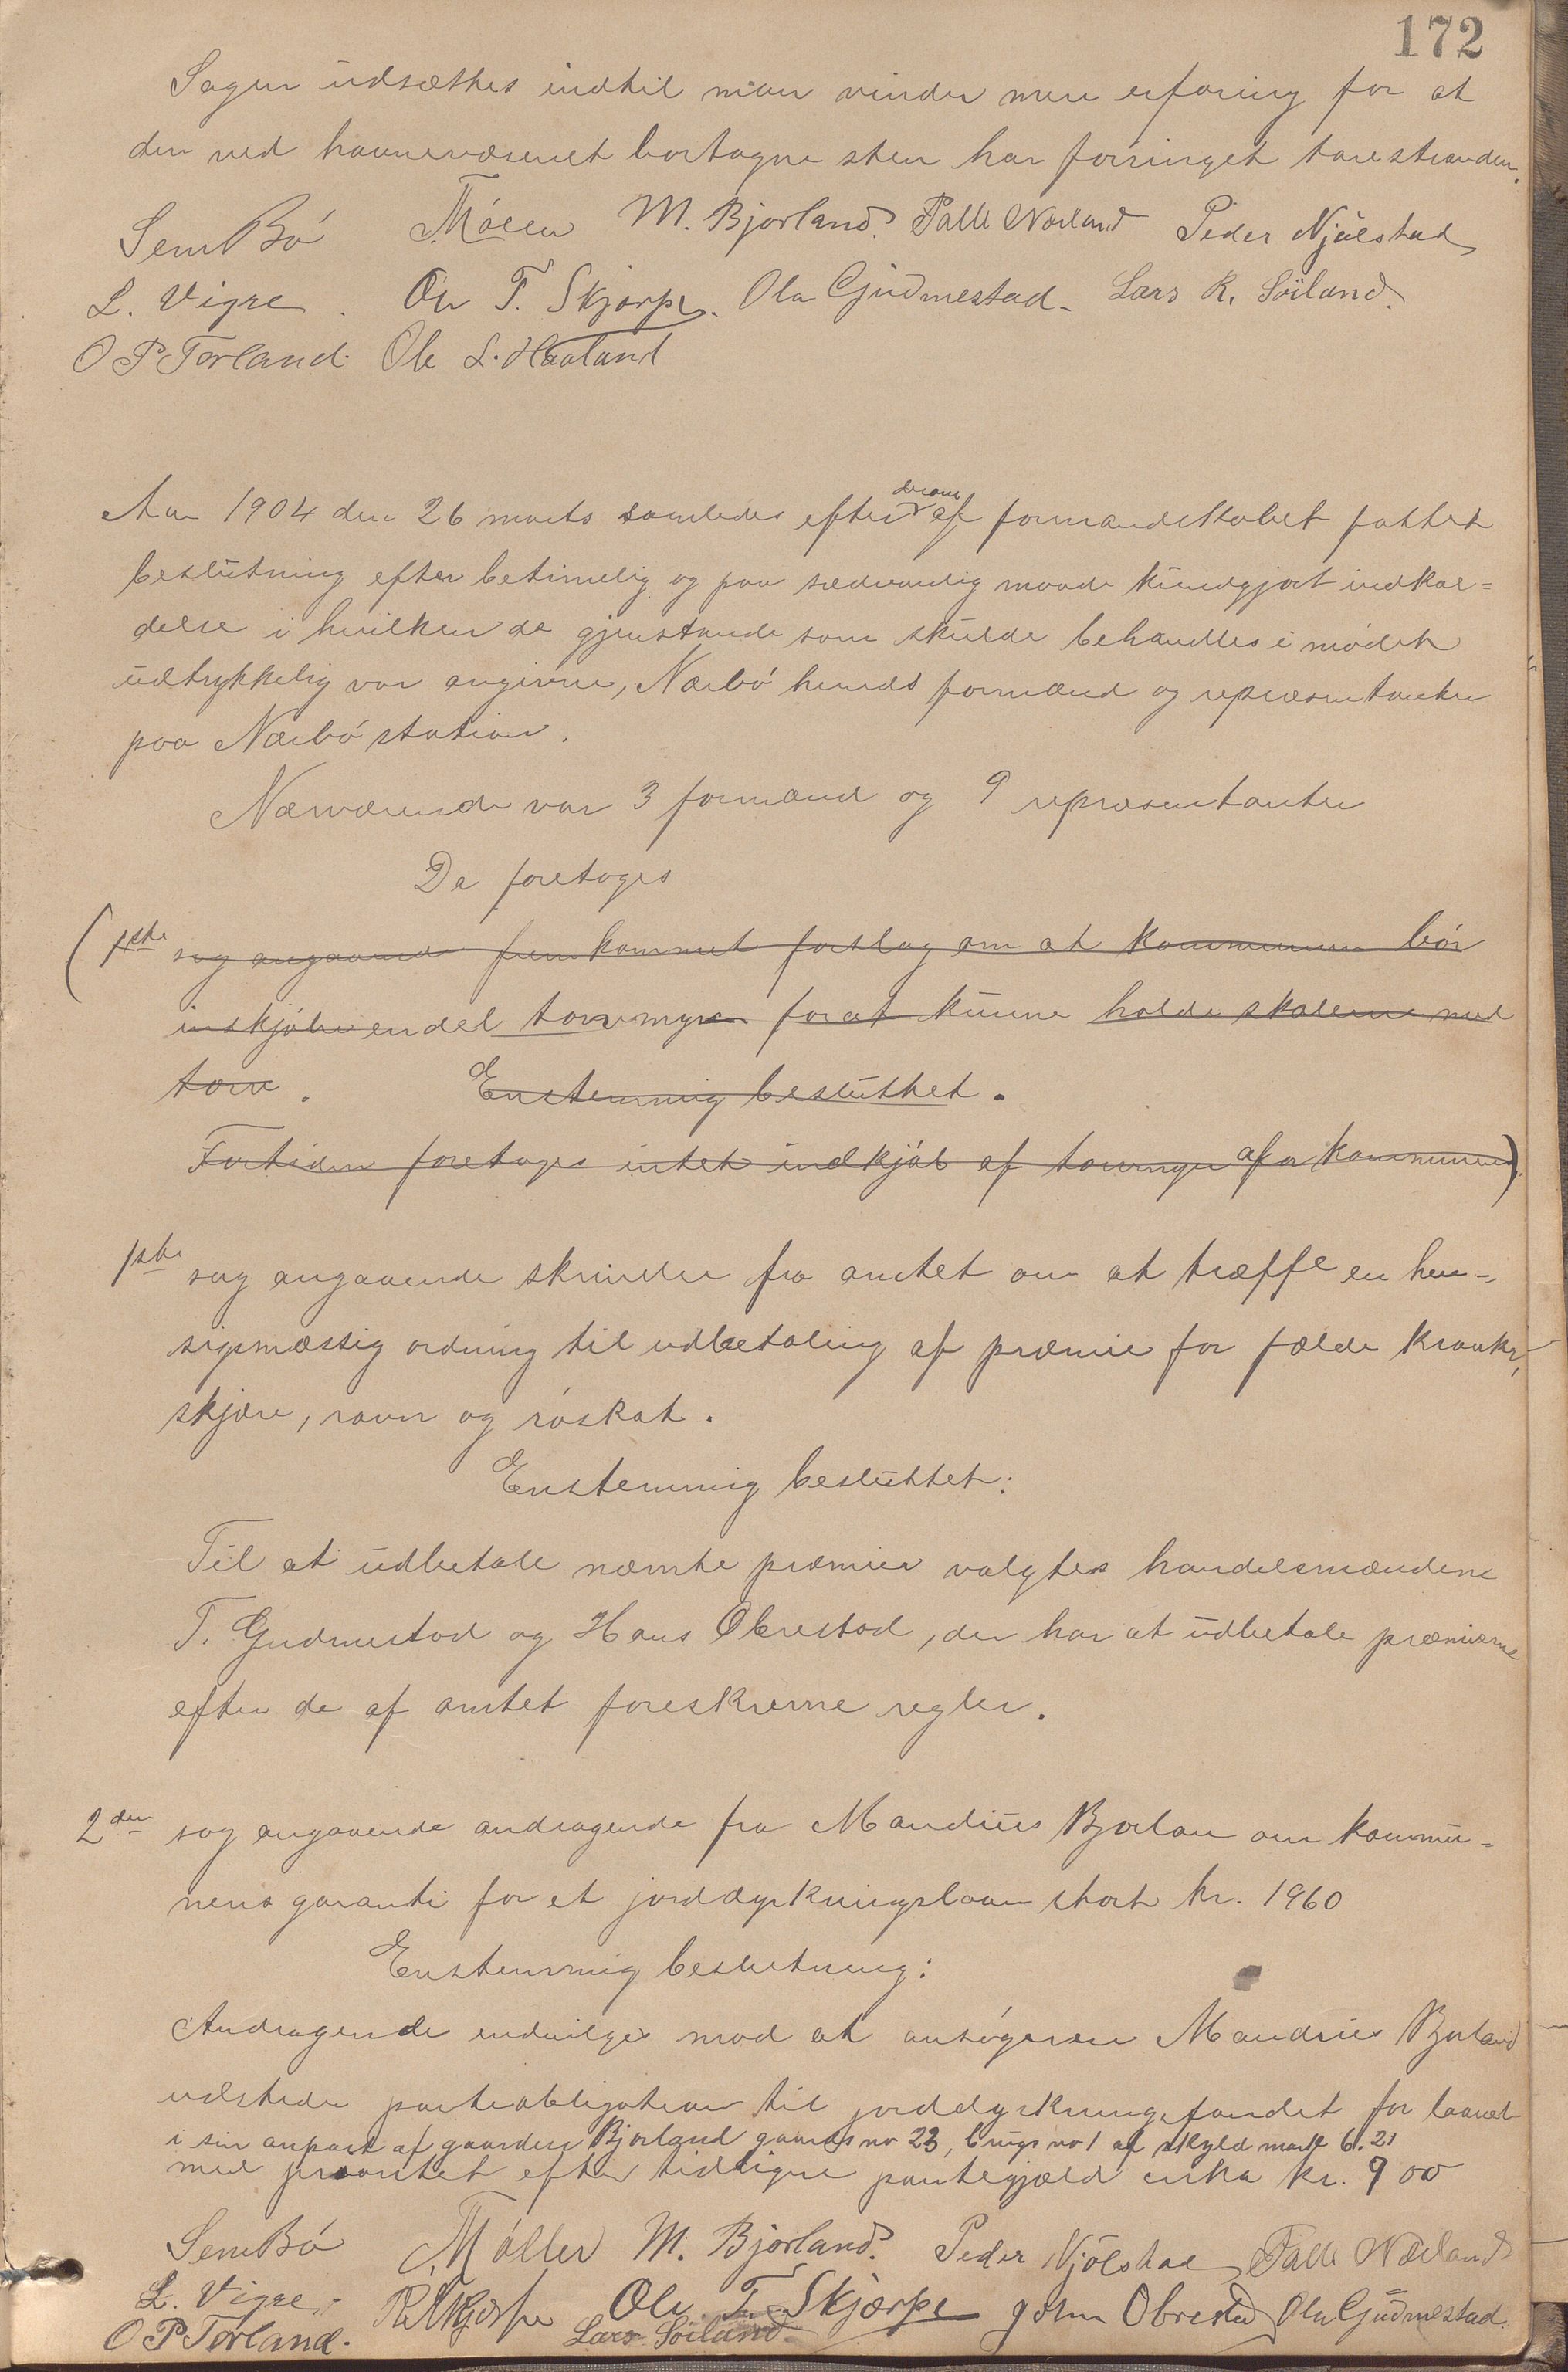 172
Sagen udsættes indtil man vinder mere erfaring for at
den ved havnevæsenet bortagne sten har forringet tarestranden.
Sem Bó Móller M. Bjorland. Palle Nærland Peder Njølstad
L. Vigre. Ole T. Skjærpe. Ola Gjudmestad. Lars R. Söiland.
O P Torland. Ole L. Haaland
Aar 1904 den 26 marts samledes efter derom af formandskabet fattet
beslutning efter betimelig og paa sædvanlig maade kundgjort indkal=
delse i hvilken de gjenstande som skulde behandles i mødet
udtrykkelig var angivne, Nærbó herreds formænd og repræsentanter
paa Nærbó station.
Nærværende var 3 formænd og 9 repræsentanter
De foretoges
(1ste sag angaaende fremkommet forslag om at kommunen bór
inskjóbe endel torvmyr for at kunne holde skolerne med
torv. Enstemmig besluttet.
Fortiden foretages intet indkjób af torvmyr af kommunen)
1ste sag angaaende skrivelse fra amtet om at træffe en hen-
sigsmæssig ordning til udbetaling af præmie for fælde kraake,
skjære, ravn og róskat.
Enstemmig besluttet:
Til at udbetale nævnte præmier valgtes handelsmændene
T. Gudmestad og Hans Obrestad, der har at udbetale præmierne
efter de af amtet foreskrevne regler.
2den sag angaaende andragende fra Mandius Bjorlan om kommu=
nens garanti for et jorddyrkningslaan stort kr. 1960
Enstemmig beslutning:
Andragende indvilges mod at ansógeren Mandius Bjorland
udsteder panteobligation til jorddyrkningsfondet for laanet
i sin anpart af gaarden Bjorland gaards no 23, brugs no 1 af skyld mark 6.21
med prioritet efter tidligere pantegjæld cirka kr. 900
Sem Bó Móller M. Bjorland. Peder Njólstad Palle Nærland
L. Vigre. R Skjærpe Ole T. Skjærpe John Obrestad Ola Gjudmestad.
O P Torland. Lars Soiland